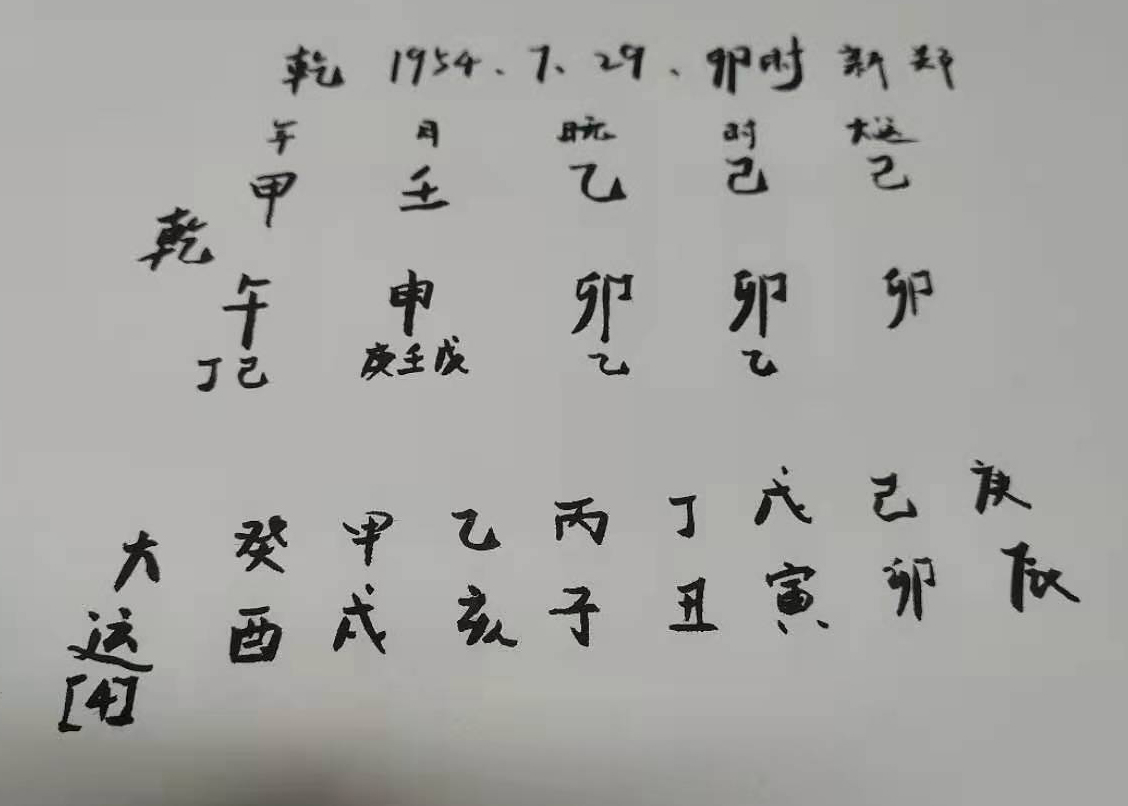 乾 1954.7.29.卯时 新郑
年 月 日元 时 大运
甲 壬 乙 己 己
乾
午 申 卯 卯 卯
丁己 庚壬戊 乙 乙
大 癸 甲 乙 丙 丁 戊 己 庚
运 酉 戌 亥 子 丑 寅 卯 辰
[4]